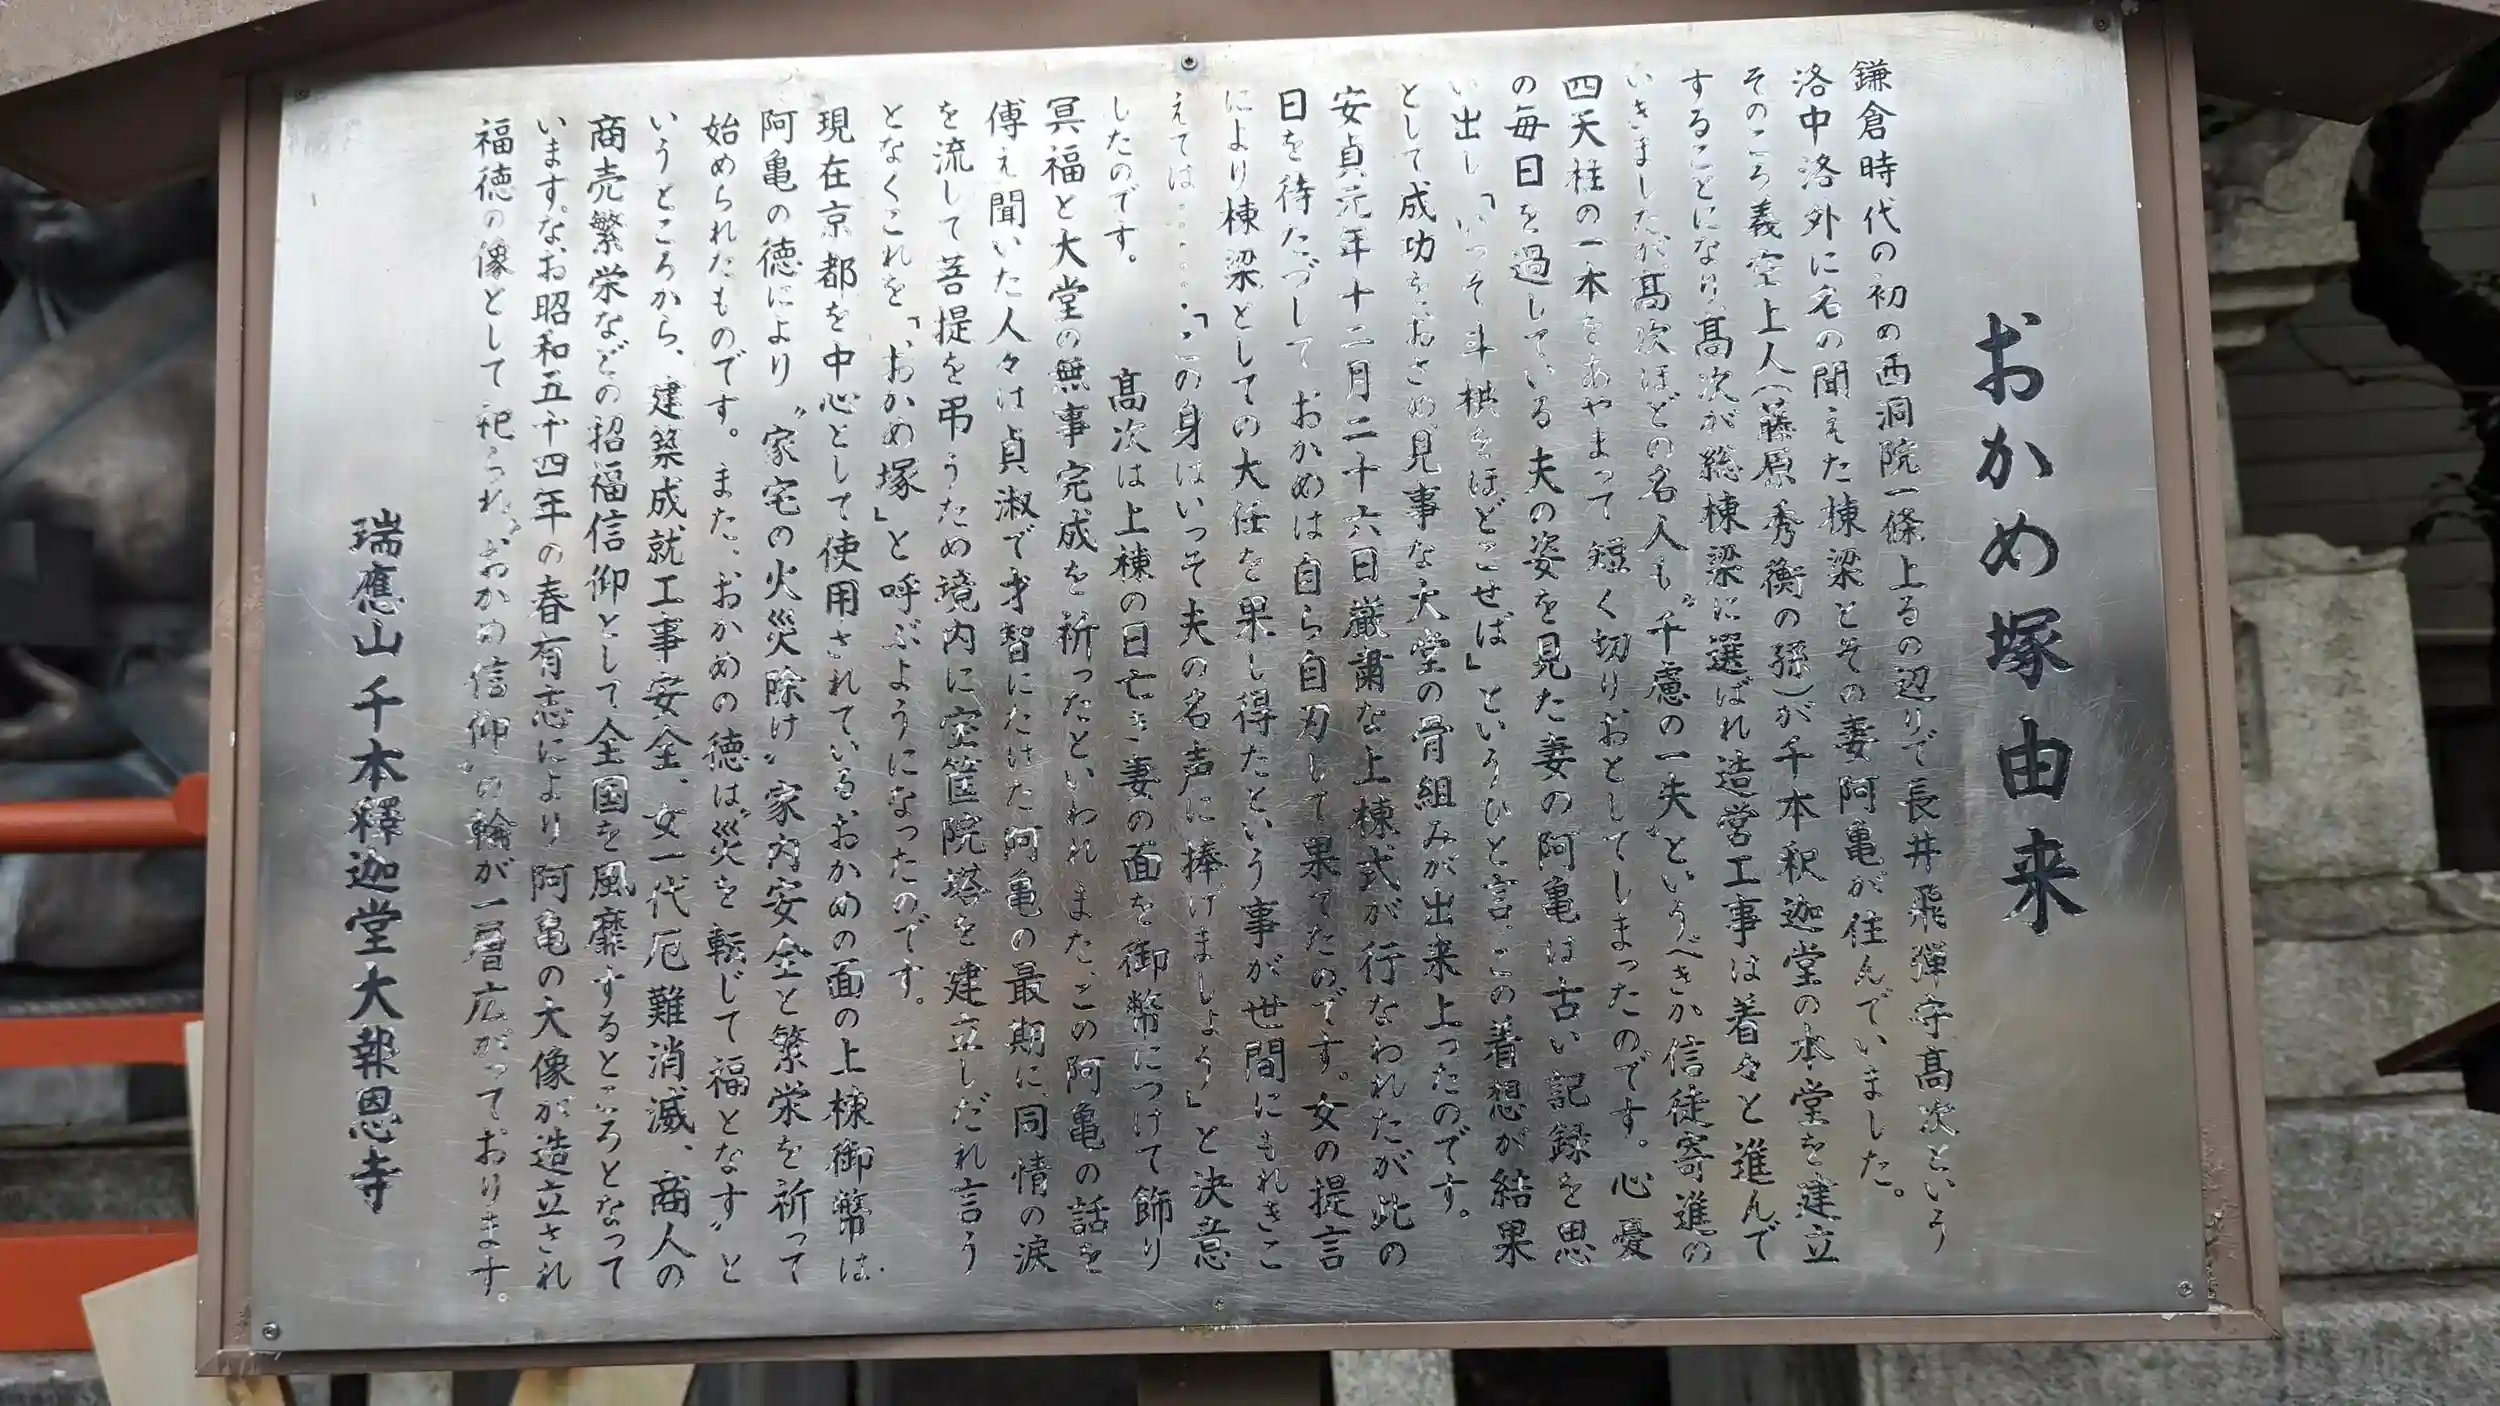 おかめ塚由来
鎌倉時代の初め西洞院一條上るの辺りで長井飛彈守高次という
洛中洛外に名の聞えた棟梁とその妻阿亀が住んでいました。
そのころ義空上人(藤原秀衡の孫)が千本釈迦堂の本堂を建立
することになり、高次が総棟梁に選ばれ造営工事は着々と進んで
いきましたが、高次ほどの名人も〝千慮の一失〟というべきか信徒寄進の
四天柱の一本をあやまって短く切りおとしてしまったのです。心憂
の毎日を過している夫の姿を見た妻の阿亀は古い記録を思
い出し「いっそ斗栱をほどこせば」というひと言、この着想が結果
として成功をおさめ、見事な大堂の骨組みが出来上ったのです。
安貞元年十二月二十六日厳粛な上棟式が行なわれたが此の
日を待たづしておかめは自ら自刃して果てたのです。女の提言
により棟梁としての大任を果し得たという事が世間にもれきこ
えては‥‥‥「この身はいっそ夫の名声に捧げましょう」と決意
したのです。　高次は上棟の日亡き妻の面を御幣につけて飾り
冥福と大堂の無事完成を祈ったといわれ、また、この阿亀の話を
傅え聞いた人々は貞淑で才智にたけた阿亀の最期に、同情の涙
を流して菩提を弔うため境内に宝筐院塔を建立しだれ言う
となくこれを「おかめ塚」と呼ぶようになったのです。
現在京都を中心として使用されているおかめの面の上棟御幣は、
阿亀の徳により〝家宅の火災除け〟家内安全と繁栄を祈って
始められたものです。また、おかめの徳は〝災を転じて福となす〟と
いうところから、建築成就工事安全、女一代厄難消滅、商人の
商売繁栄などの招福信仰として全国を風靡するところとなって
います。なお昭和五十四年の春有志により阿亀の大像が造立され
福徳の像として祀られ、〝おかめ信仰〟の輪が一層広がっております。
瑞應山千本釋迦堂大報恩寺